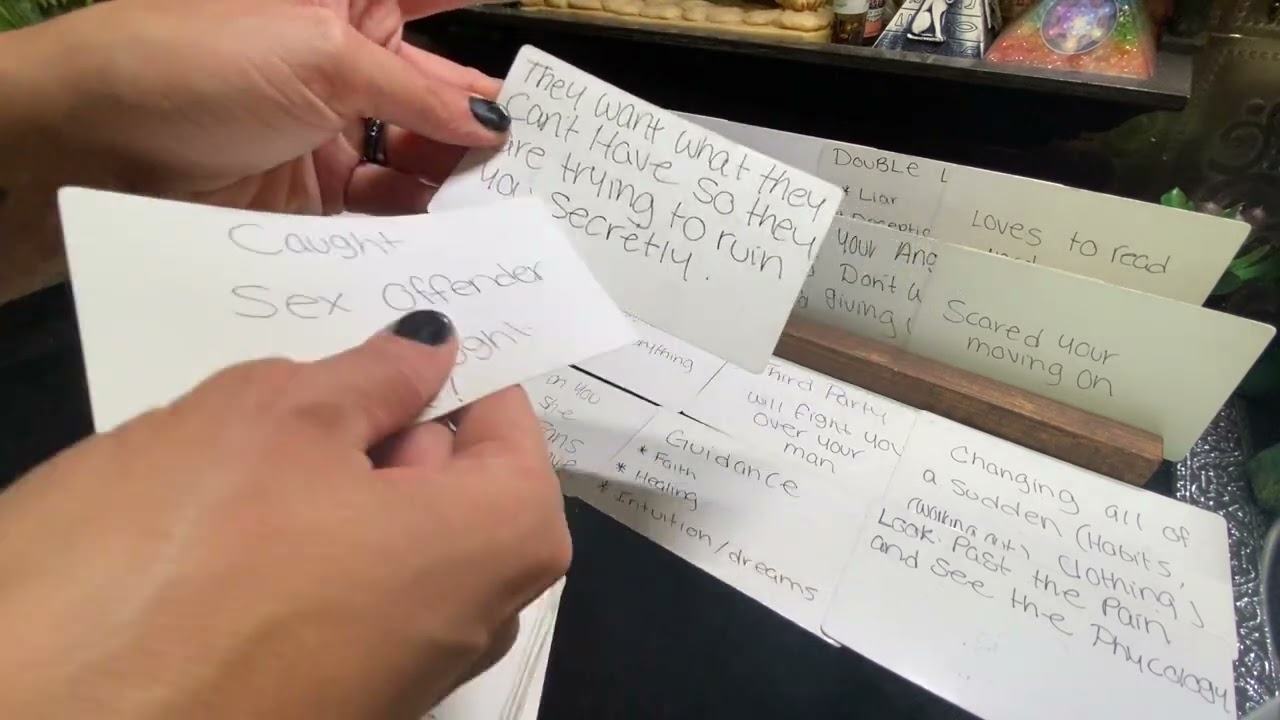 They want what they
Can't Have so they
are trying to ruin
you secretly.
Caught
Sex Offender
Double L
* Liar
Loves to read
your Ang
Don't
giving
Scared your
moving on
Third Party
will fight you
over your
man
on you
She
Guidance
* Faith
* Healing
* Intuition/dreams
Changing all of
a Sudden (Habits,
(Working out) Clothing)
Look Past the Pain
and See the Phycology